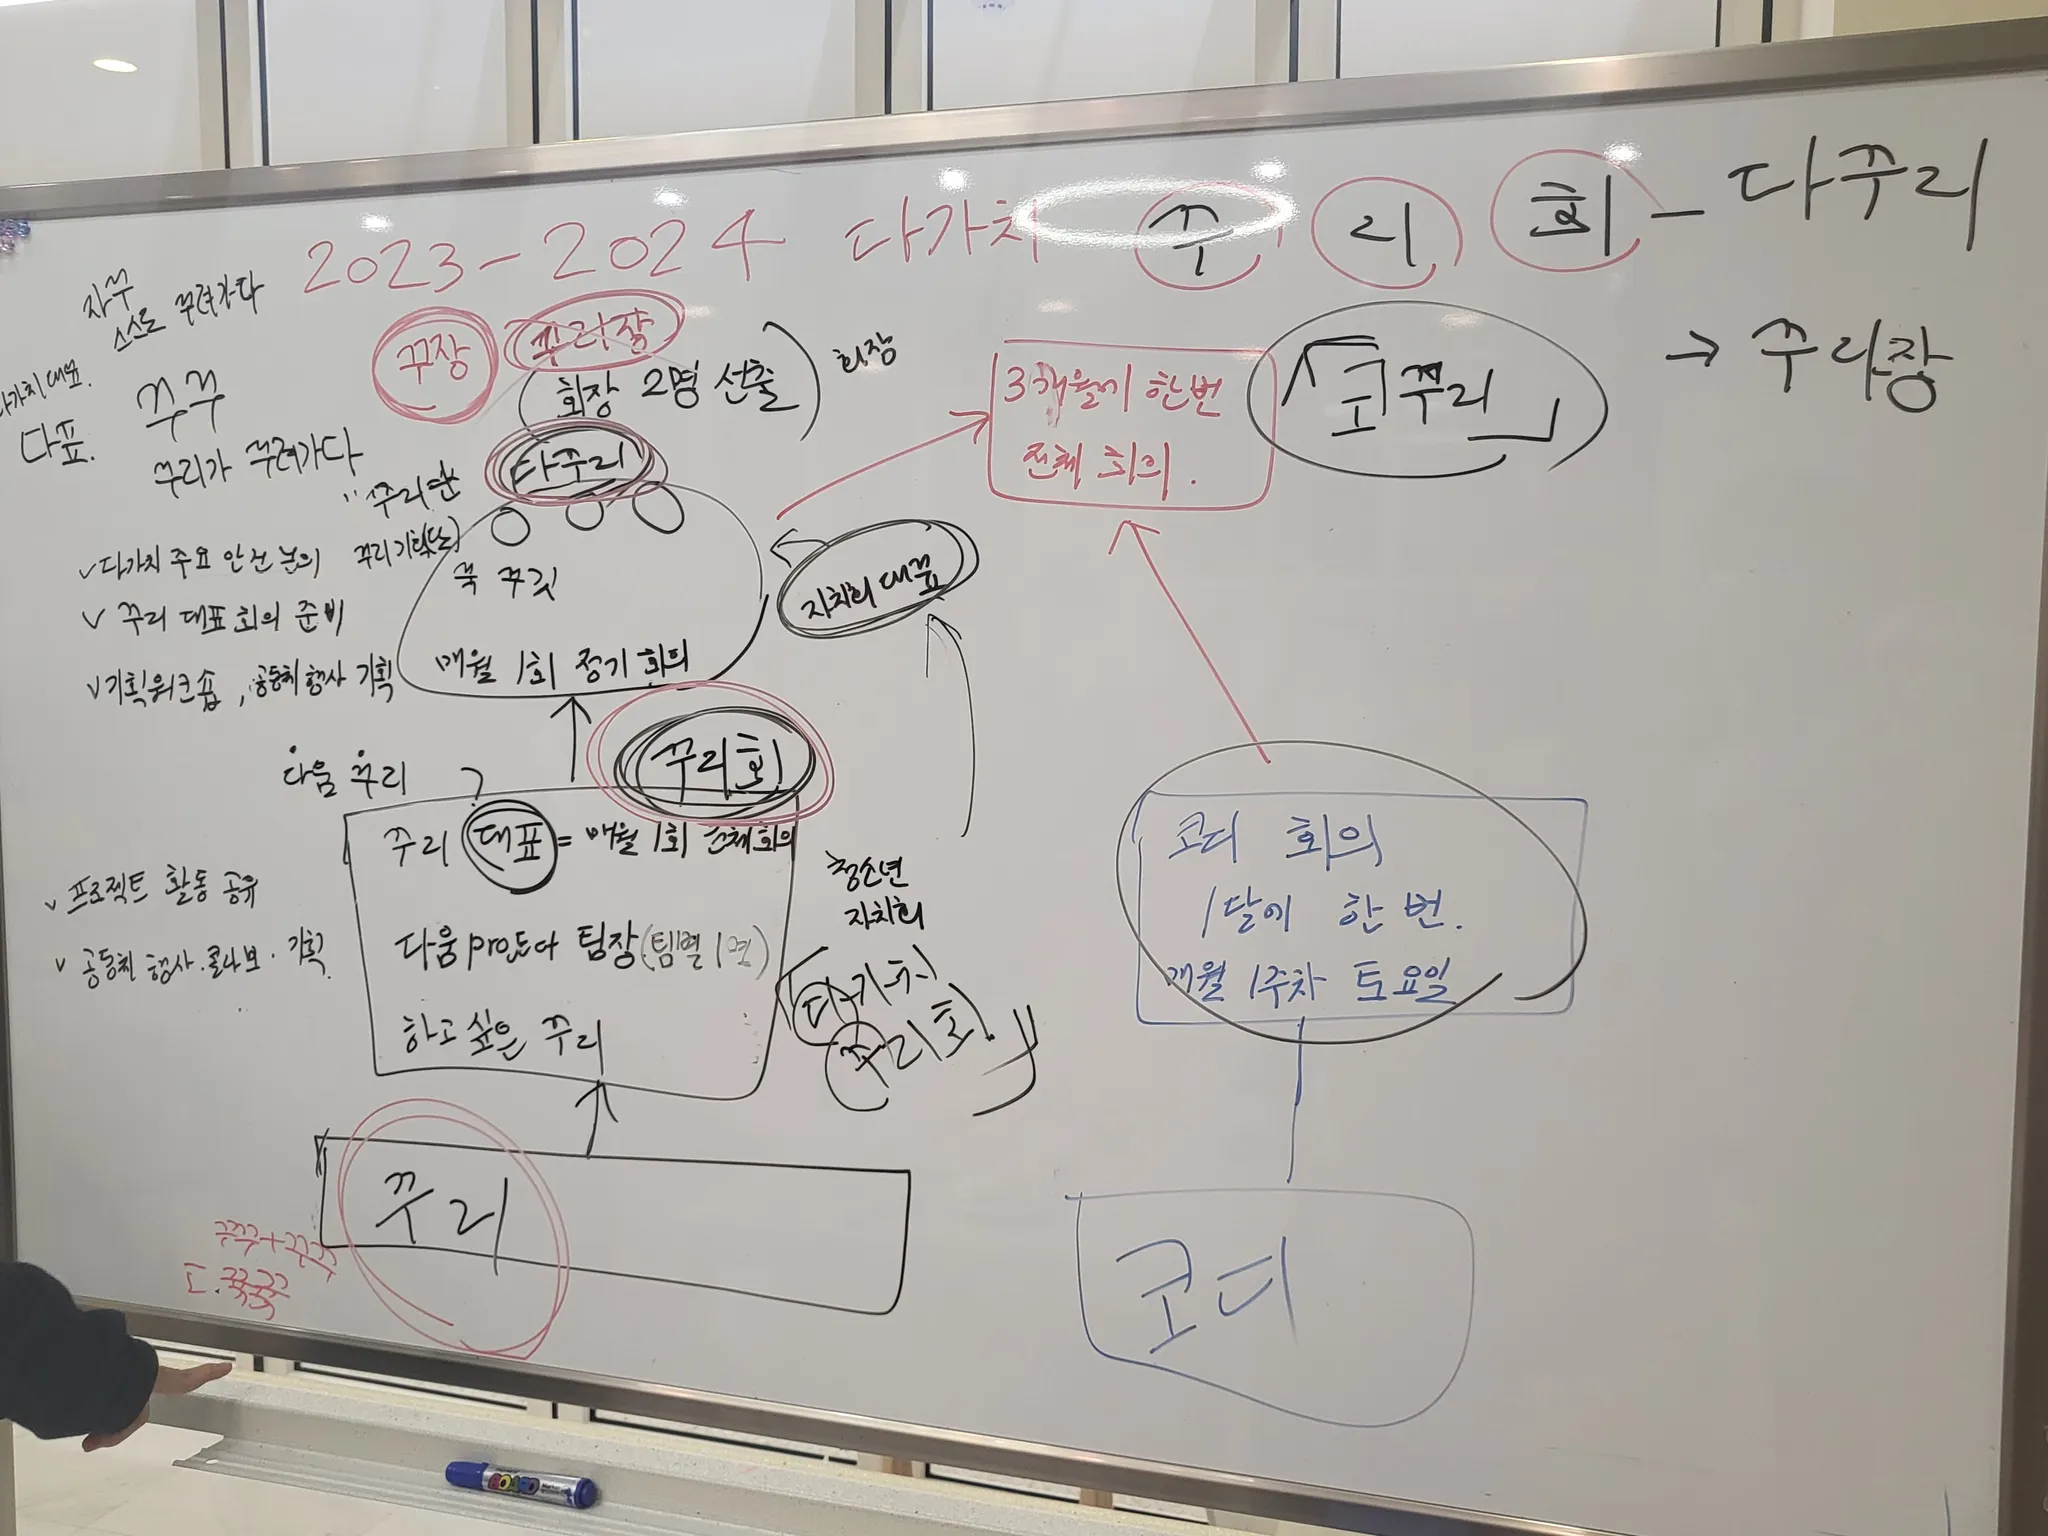 2023-2024 다가치 꾸 리 회 - 다꾸리
→ 꾸리장
자꾸
스스로 꾸려가다
다가치대표.
다표.
꾸꾸
꾸리가 꾸려가다
꾸장 꾸리짱
(회장 2명 선출) 회장
다꾸리
매월 1회 정기 회의
✓ 다가치 주요 안건 논의
✓ 꾸리 대표 회의 준비
✓ 기획워크숍, 공동체 행사 기획
자치회 대표
3개월에 한번
전체 회의.
「코꾸리」
다움 꾸리
꾸리회
꾸리 대표 = 매월 1회 전체회의
다움 project 팀장 (팀별 1명)
하고 싶은 꾸리
✓ 프로젝트 활동 공유
✓ 공동체 행사·콜라보·기획
청소년
자치회
「다가치
꾸리회」
꾸리
코디 회의
1달에 한 번.
매월 1주차 토요일
코디